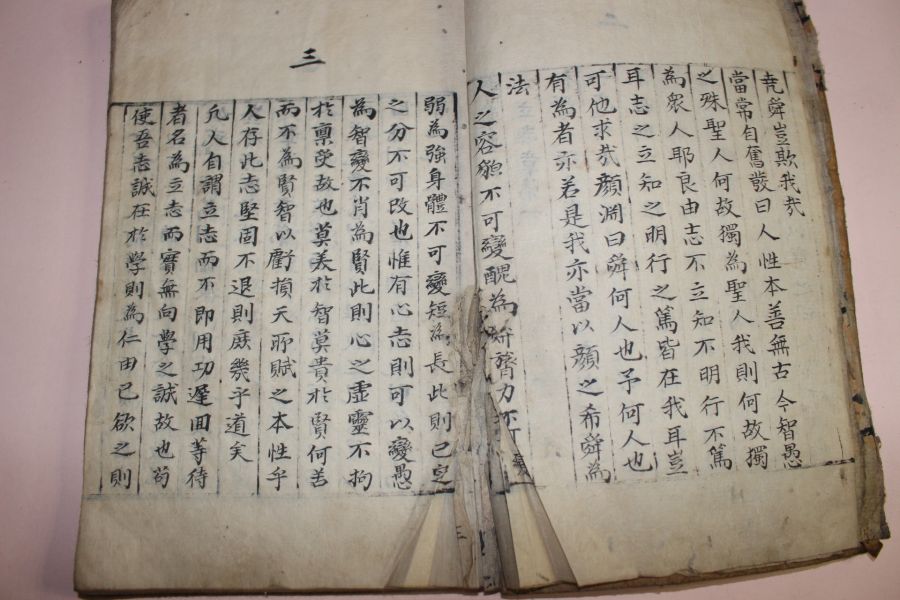 二
堯舜豈欺我哉
當常自奮發曰人性本善無古今智愚
之殊聖人何故獨為聖人我則何故獨
為衆人耶良由志不立知不明行不篤
耳志之立知之明行之篤皆在我耳豈
可他求哉顔淵曰舜何人也予何人也
有為者亦若是我亦當以顔之希舜為
法
人之容貌不可變醜為姸膂力不可
三
弱為強身體不可變短為長此則已定
之分不可改也惟有心志則可以變愚
為智變不肖為賢此則心之虛靈不拘
於禀受故也莫美於智莫貴於賢何苦
而不為賢智以虧損天所賦之本性乎
人存此志堅固不退則庶幾乎道矣
凡人自謂立志而不即用功遲回等待
者名為立志而實無向學之誠故也苟
使吾志誠在於學則為仁由已欲之則